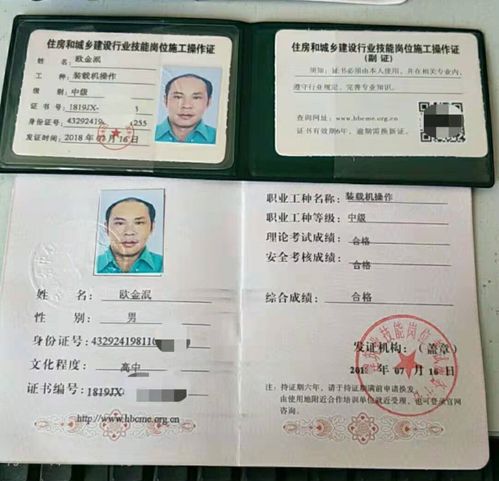 住房和城乡建设行业技能岗位施工操作证
姓 名: 欧金泯
工 种: 装载机操作
级 别: 中级
证 书 号: 1819JX-
身份证号: 43292419 4255
发证时间: 2018 年 07 月 16 日
住房和城乡建设行业技能岗位施工操作证
(副 证)
须知: 证书必须由本人使用,并在相关专业内,
遵守行业规定,完善专业知识。
查询网址: www.hbcme.org.cn
证书有效期6年,逾期需换新证。
姓 名: 欧金泯
性 别: 男
身份证号: 432924198110
文化程度: 高中
证书编号: 1819JX-
http://www.hbcme.org.cn
职业工种名称: 装载机操作
职业工种等级: 中级
理论考试成绩: 合格
安全考核成绩: 合格
综合成绩: 合格
发证机构: (盖章)
2018 年 07 月 16 日
注: 持证期六年,请于持证期满前申请换发,
由使用地附近合作培训单位就近受理,也可登录官网
咨询。